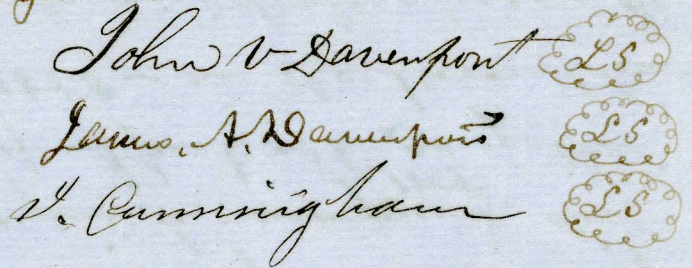 John V Davenport LS
James. A. Davenport LS
J. Cunningham LS